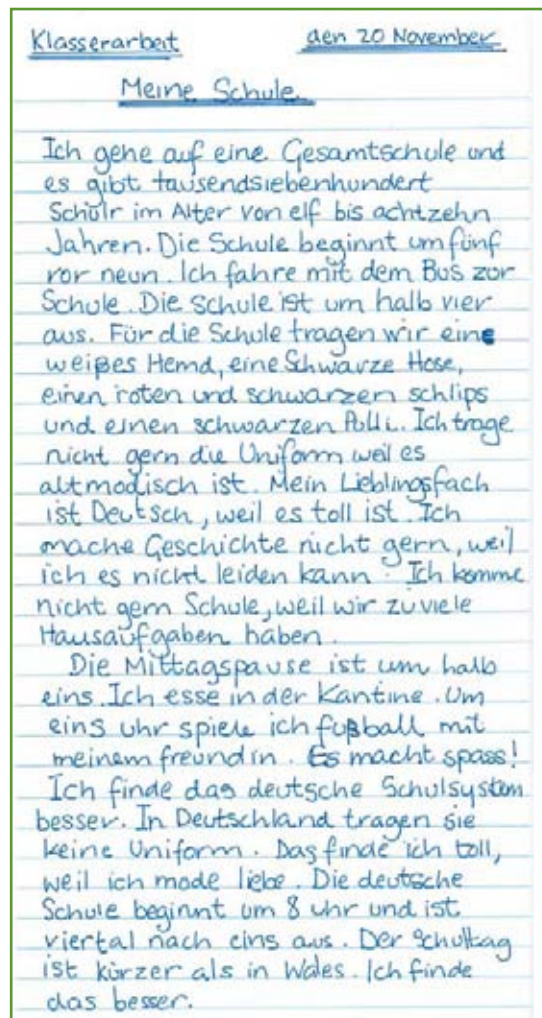 Klasserarbeit den 20 November
Meine Schule
Ich gehe auf eine Gesamtschule und
es gibt tausendsiebenhundert
Schülr im Alter von elf bis achtzehn
Jahren. Die Schule beginnt um fünf
vor neun. Ich fahre mit dem Bus zur
Schule. Die Schule ist um halb vier
aus. Für die Schule tragen wir eine
weißes Hemd, eine Schwarze Hose,
einen roten und schwarzen schlips
und einen schwarzen Pulli. Ich trage
nicht gern die Uniform weil es
altmodisch ist. Mein Lieblingsfach
ist Deutsch, weil es toll ist. Ich
mache Geschichte nicht gern, weil
ich es nicht leiden kann. Ich komme
nicht gern Schule, weil wir zu viele
Hausaufgaben haben.
Die Mittagspause ist um halb
eins. Ich esse in der Kantine. Um
eins uhr spiele ich fußball mit
meinem freundin. Es macht spass!
Ich finde das deutsche Schulsystem
besser. In Deutschland tragen sie
keine Uniform. Das finde ich toll,
weil ich mode liebe. Die deutsche
Schule beginnt um 8 uhr und ist
viertal nach eins aus. Der Schultag
ist kürzer als in Wales. Ich finde
das besser.